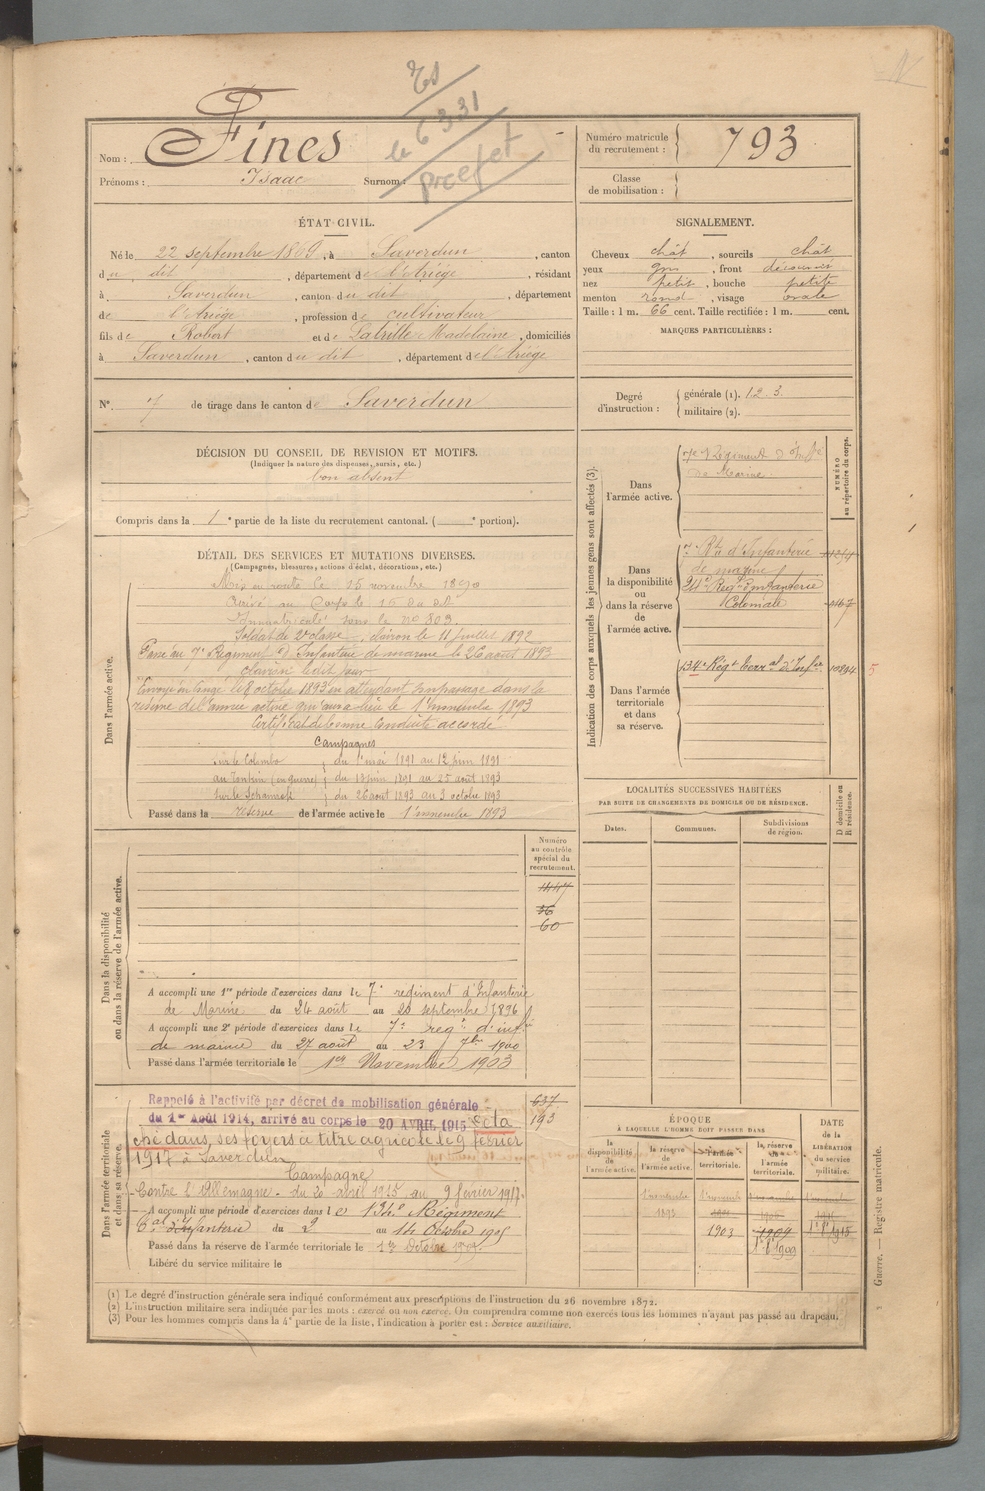 Es
le 6 331
préfet
Nom : Fines
Prénoms : Isaac Surnom :
Numéro matricule du recrutement : 793
Classe de mobilisation :
ÉTAT CIVIL.
Né le 22 septembre 1869, à Saverdun, canton
du dit, département de l'Ariège, résidant
à Saverdun, canton du dit, département
de l'Ariège, profession de cultivateur
fils de Robert et de Latrille Madelaine, domiciliés
à Saverdun, canton du dit, département de l'Ariège
N° 7 de tirage dans le canton de Saverdun
SIGNALEMENT.
Cheveux chât, sourcils chât
yeux gris, front découvert
nez petit, bouche petite
menton rond, visage ovale
Taille : 1 m. 66 cent. Taille rectifiée : 1 m. cent.
MARQUES PARTICULIÈRES :
Degré d'instruction :
générale (1). 1.2.3.
militaire (2).
DÉCISION DU CONSEIL DE REVISION ET MOTIFS.
(Indiquer la nature des dispenses, sursis, etc.)
bon absent
Compris dans la 1e partie de la liste du recrutement cantonal. ( e portion).
DÉTAIL DES SERVICES ET MUTATIONS DIVERSES.
(Campagnes, blessures, actions d'éclat, décorations, etc.)
Dans l'armée active.
Mis en route le 15 novembre 1890
Arrivé au Corps le 15 du dit
Immatriculé sous le no 803.
Soldat de 2e classe, clairon le 11 juillet 1892
Passé au 7e Régiment d'Infanterie de marine le 26 août 1893
clairon ledit jour
Envoyé en congé le 8 octobre 1893 en attendant son passage dans la
réserve de l'armée active qui aura lieu le 1er novembre 1893
Certificat de bonne conduite accordé
Campagnes
sur le Colombo du 1er mai 1891 au 12 juin 1891
au Tonkin (en guerre) du 13 juin 1891 au 25 août 1893
sur le du 26 août 1893 au 3 octobre 1893
Passé dans la réserve de l'armée active le 1er novembre 1893
Indication des corps auxquels les jeunes gens sont affectés (3).
NUMÉRO au répertoire du corps.
Dans l'armée active.
Régiment d'Infie
de Marine
Dans la disponibilité ou dans la réserve de l'armée active.
7e Rt d'Infanterie
de marine
24e Régt d'infanterie
Coloniale
Dans l'armée territoriale et dans sa réserve.
134e Régt Terral d'Infie 10894
5
Dans la disponibilité ou dans la réserve de l'armée active.
Numéro au contrôle spécial du recrutement.
1447
36
60
A accompli une 1re période d'exercices dans le 7e régiment d'Infanterie
de Marine du 24 août au 20 septembre 1896
A accompli une 2e période d'exercices dans le 7e régt d'infie
de marine du 27 août au 23 7bre 1900
Passé dans l'armée territoriale le 1er Novembre 1903
Dans l'armée territoriale et dans sa réserve.
637
193
Rappelé à l'activité par décret de mobilisation générale
du 1er Août 1914, arrivé au corps le 20 AVRIL 1915 Déta
ché dans ses foyers à titre agricole le 9 février
1917 à Saverdun
Campagne
Contre l'Allemagne du 20 avril 1915 au 9 février 1917.
A accompli une période d'exercices dans le 134e Régiment
Tal d'Infanterie du 2 au 14 Octobre 1905
Passé dans la réserve de l'armée territoriale le 1er Octobre 1909.
Libéré du service militaire le
LOCALITÉS SUCCESSIVES HABITÉES
PAR SUITE DE CHANGEMENTS DE DOMICILE OU DE RÉSIDENCE.
Dates. Communes. Subdivisions de région. D domicile ou R résidence.
ÉPOQUE
À LAQUELLE L'HOMME DOIT PASSER DANS
la disponibilité de l'armée active.
la réserve de l'armée active.
l'armée territoriale.
la réserve de l'armée territoriale.
DATE de la LIBÉRATION du service militaire.
1er novembre 1er novembre 1er novembre 1er novembre
1893
1903 1909 1er 8bre 1915
1er 8bre 1909
(1) Le degré d'instruction générale sera indiqué conformément aux prescriptions de l'instruction du 26 novembre 1872.
(2) L'instruction militaire sera indiquée par les mots : exercé ou non exercé. On comprendra comme non exercés tous les hommes n'ayant pas passé au drapeau.
(3) Pour les hommes compris dans la 4e partie de la liste, l'indication à porter est : Service auxiliaire.
Guerre. — Registre matricule.